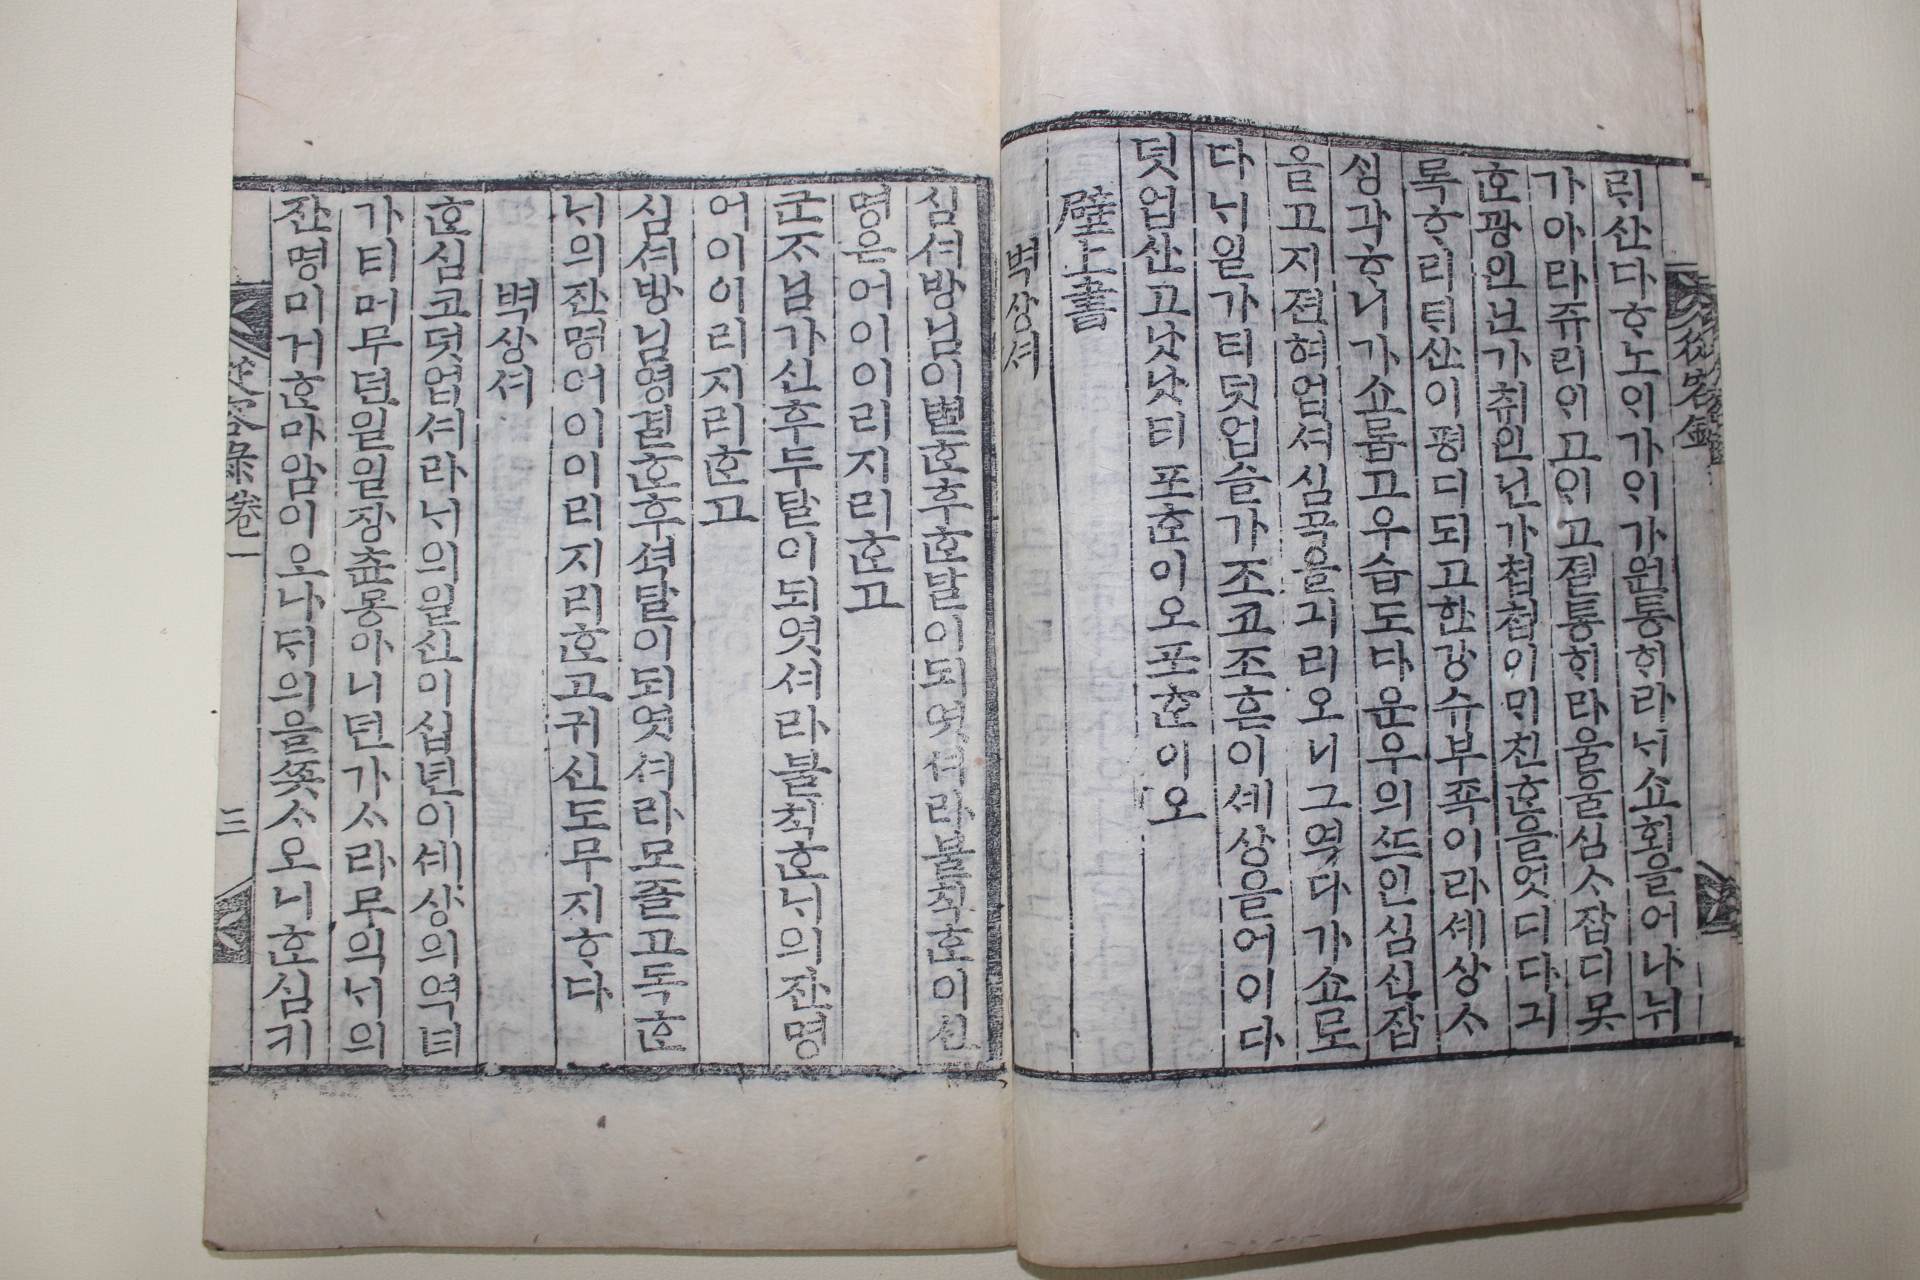 뤼산다ᄒᆞ노이가이가원동히라ᄂᆡ쇼회을어나뉘
가아라쥬리이고이고졀통히라울울심ᄉᆞ잡디못
ᄒᆞᆫ광인넌가취인넌가쳡쳡이ᄆᆡ친ᄒᆞᆫ을엇디다긔
록ᄒᆞ리ᄐᆡ산이평디되고한강슈부죡이라셰상ᄉᆞ
ᄉᆡᆼ각ᄒᆞ니가쇼롭고우습도다운우의ᄯᅳ인심신잡
을고지젼혀업셔심곡을긔리오니그역다가쇼로
다ᄂᆡ일가티덧업슬가조코조흔이셰상을어이다
덧업산고낫낫티포ᄒᆞᆫ이오포ᄒᆞᆫ이오
壁上書
벽상셔
심셔방님이별ᄒᆞᆫ후ᄒᆞᆫ달이되엿셔라불칙ᄒᆞᆫ이신
명은어이이리지리ᄒᆞᆫ고
군ᄌᆞ님가신후두달이되엿셔라불칙ᄒᆞᆫᄂᆡ의잔명
어이이리지리ᄒᆞᆫ고
심셔방님영결ᄒᆞᆫ후셕달이되엿셔라모즐고독ᄒᆞᆫ
ᄂᆡ의잔명어이이리지리ᄒᆞᆫ고귀신도무지ᄒᆞ다
벽상셔
ᄒᆞᆫ심코덧업셔라ᄂᆡ의일신이십년이셰상의역ᄐᆡ
가티머무던일일장츈몽아니턴가ᄉᆞ라무의ᄂᆡ의
잔명미거ᄒᆞᆫ마암이오나뒤의을ᄉᆞ오니ᄒᆞᆫ심키
從容錄卷一
三
從容錄